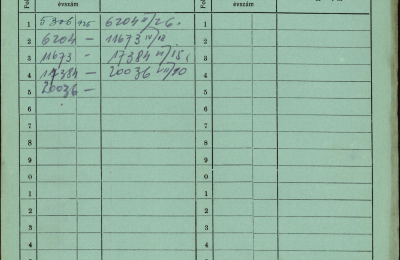 évszám évszám
1 5306/25 6204 II/26. 1
2 6204 — 11673 IV/18 2
3 11673 — 17384 VI/15. 3
4 17384 — 20036 VII/30 4
5 20036 — 5
6 6
7 7
8 8
9 9
0 0
1 1
2 2
3 3